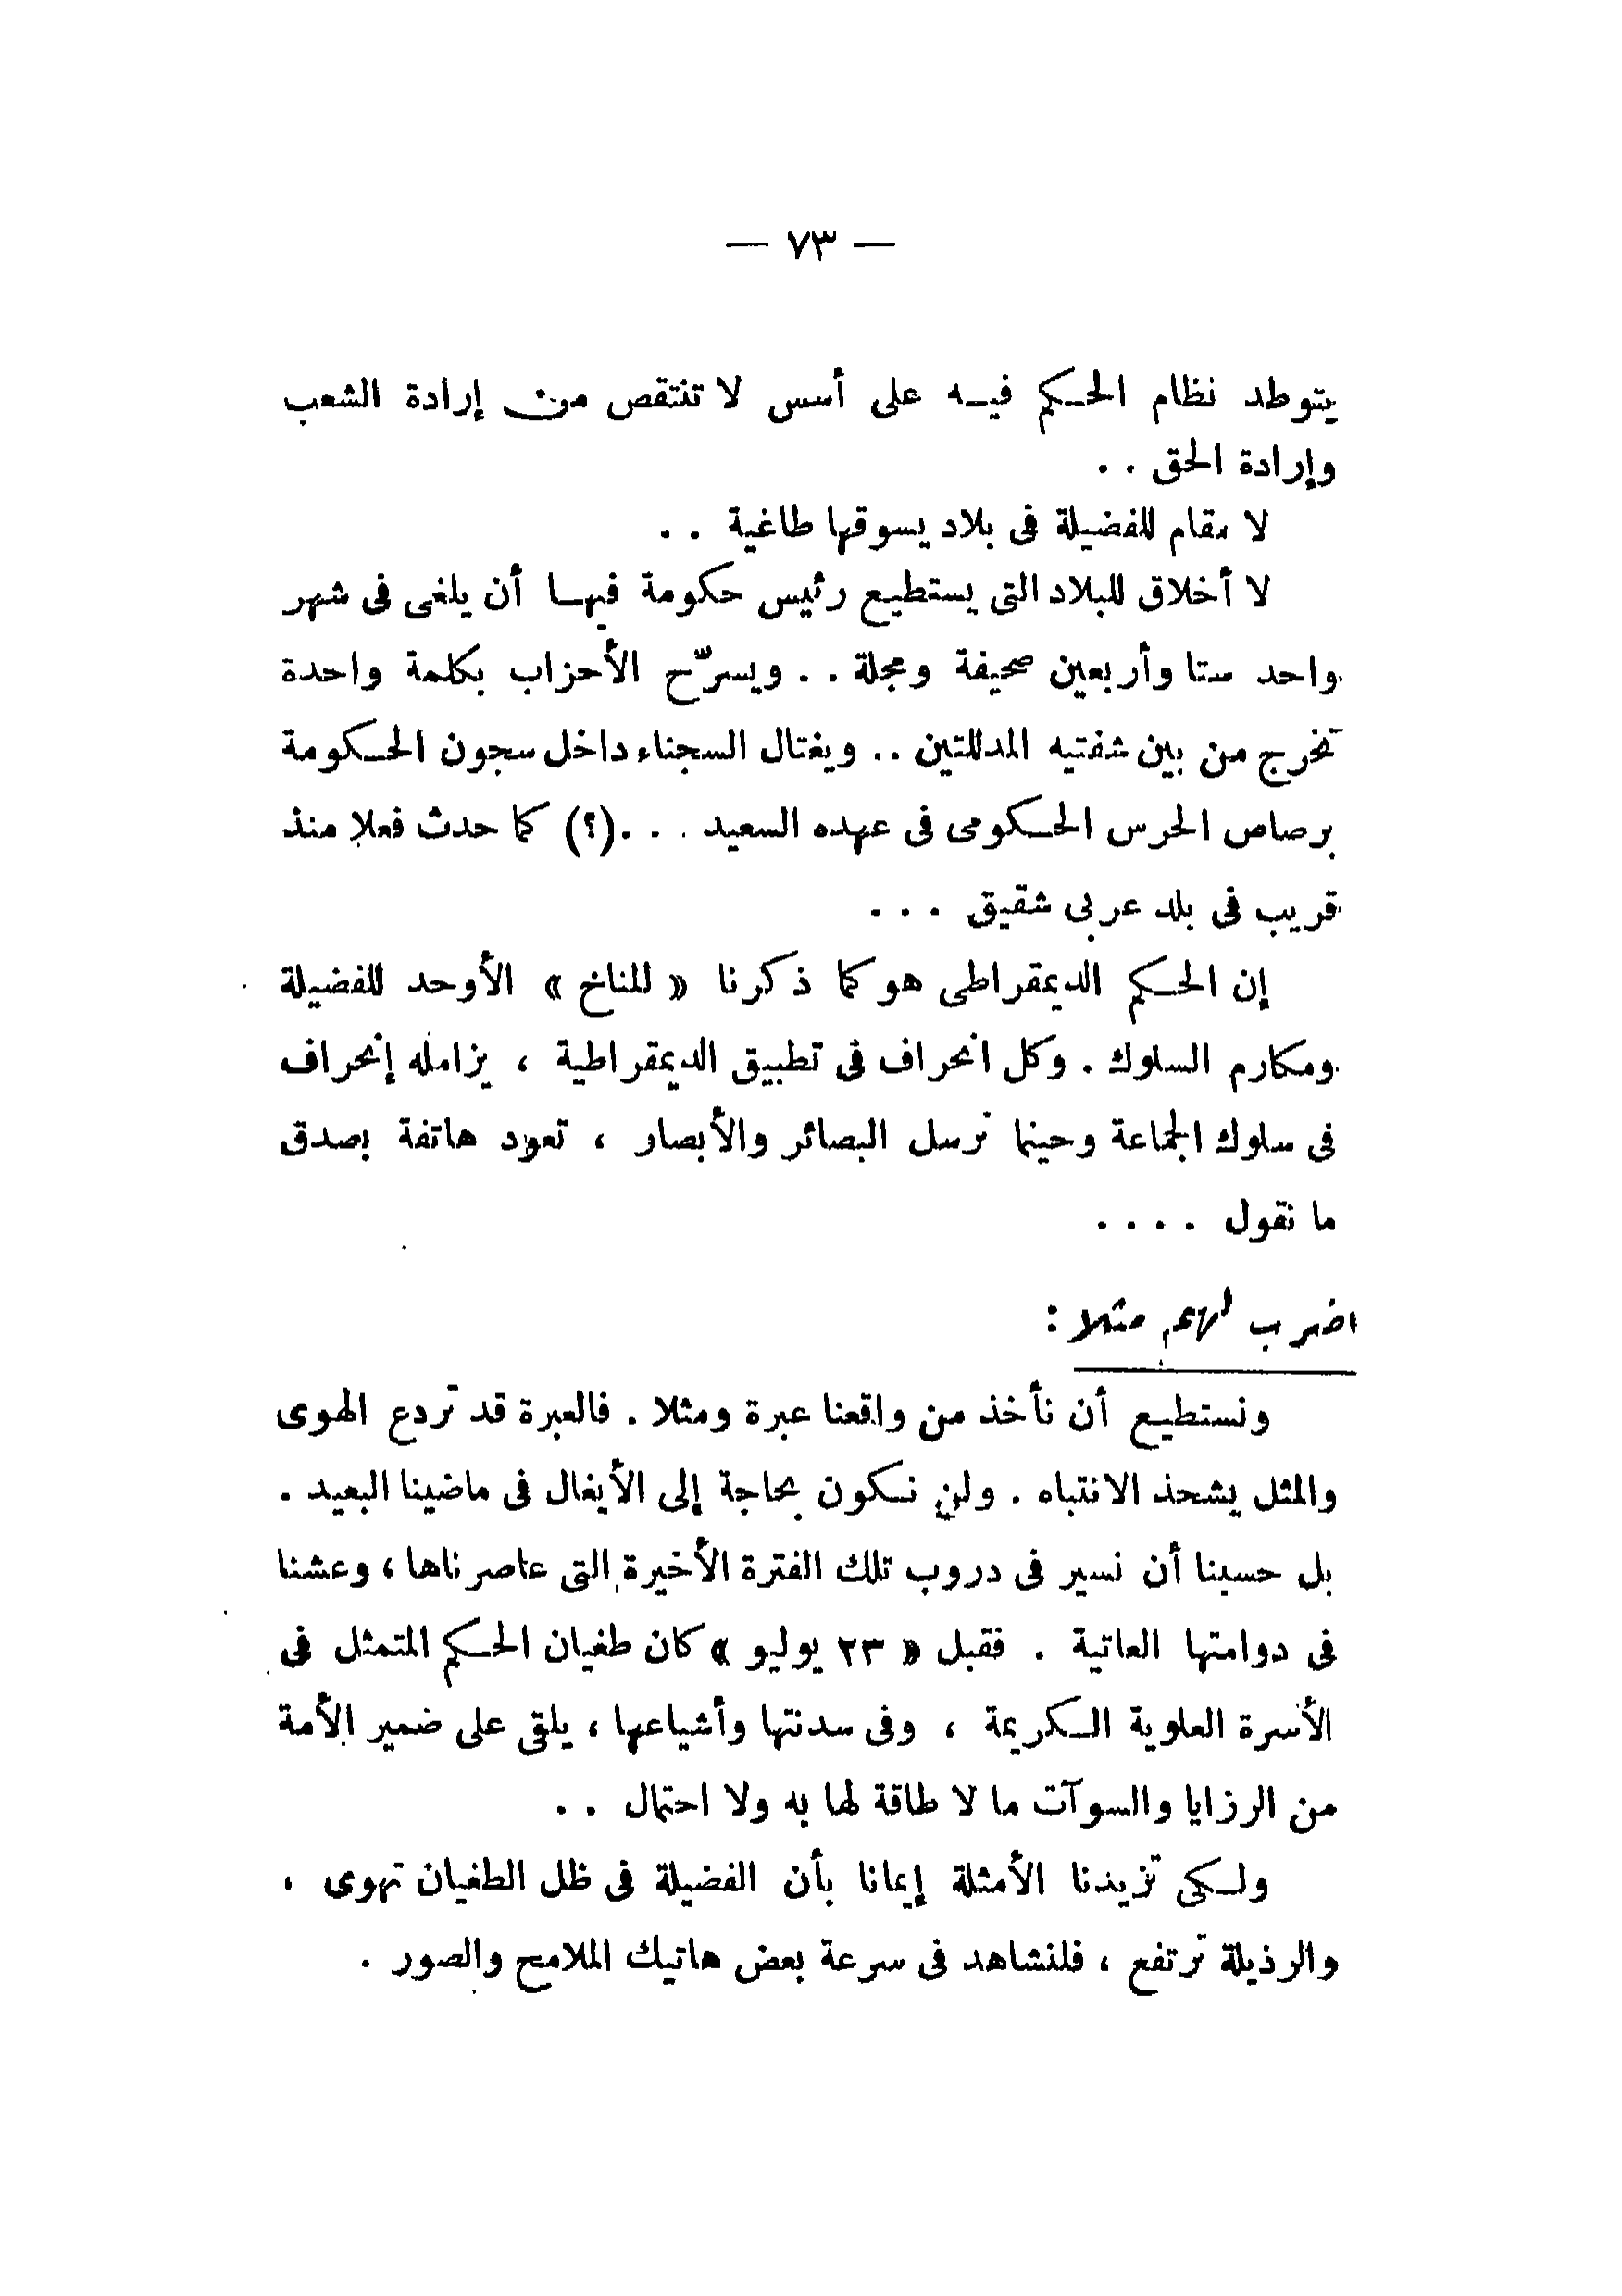 — ٧٣ —
يتوطد نظام الحكم فيه على أسس لا تنتقص من إرادة الشعب
وإرادة الحق . .
لا مقام للفضيلة فى بلاد يسوقها طاغية . .
لا أخلاق للبلاد التى يستطيع رئيس حكومة فيها أن يلغى فى شهر
واحد ستا وأربعين صحيفة ومجلة . . ويسرّح الأحزاب بكلمة واحدة
تخرج من بين شفتيه المدللتين .. ويغتال السجناء داخل سجون الحكومة
برصاص الحرس الحكومى فى عهده السعيد . . .(؟) كما حدث فعلا منذ
قريب فى بلد عربى شقيق . . .
إن الحكم الديمقراطى هو كما ذكرنا « للمناخ » الأوحد للفضيلة
ومكارم السلوك . وكل انحراف فى تطبيق الديمقراطية ، يزامله إنحراف
فى سلوك الجماعة وحينما نرسل البصائر والأبصار ، تعود هاتفة بصدق
ما نقول . . . .
اضرب لهم مثلا :
ونستطيع أن نأخذ من واقعنا عبرة ومثلا . فالعبرة قد تردع الهوى
والمثل يشحذ الانتباه . ولن نكون بحاجة إلى الأيغال فى ماضينا البعيد .
بل حسبنا أن نسير فى دروب تلك الفترة الأخيرة التى عاصرناها ، وعشنا
فى دوامتها العاتية . فقبل « ٢٣ يوليو » كان طغيان الحكم المتمثل فى
الأسرة العلوية الكريمة ، وفى سدنتها وأشياعها ، يلقى على ضمير الأمة
من الرزايا والسوآت ما لا طاقة لها به ولا احتمال . .
ولكى تزيدنا الأمثلة إيمانا بأن الفضيلة فى ظل الطغيان تهوى ،
والرذيلة ترتفع ، فلنشاهد فى سرعة بعض هاتيك الملامح والصور .